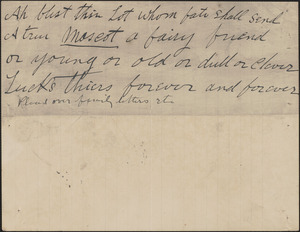 Ah blest their Lot whom fate shall send
A true Mascot a fairy friend
or young or old or dull or clever
Luck's thiers forever and forever
our family letters etc